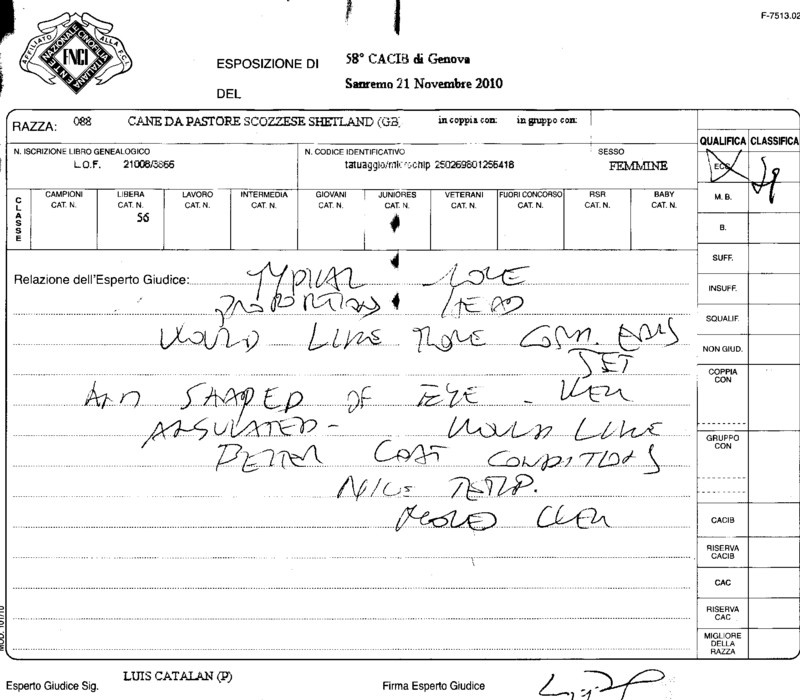 F-7513.02
AFFILIATO ALLA F.C.I.
ENTE NAZIONALE CINOFILIA ITALIANA
ENCI
ESPOSIZIONE DI 58° CACIB di Genova
DEL Sanremo 21 Novembre 2010
RAZZA: 088 CANE DA PASTORE SCOZZESE SHETLAND (GB) in coppia con: in gruppo con:
QUALIFICA CLASSIFICA
N. ISCRIZIONE LIBRO GENEALOGICO N. CODICE IDENTIFICATIVO SESSO
L.O.F. 21008/3865 tatuaggio/microchip 250269801255418 FEMMINE
ECC
CLASSE
CAMPIONI CAT. N. LIBERA CAT. N. LAVORO CAT. N. INTERMEDIA CAT. N. GIOVANI CAT. N. JUNIORES CAT. N. VETERANI CAT. N. FUORI CONCORSO CAT. N. RSR CAT. N. BABY CAT. N.
56
M.B.
B.
SUFF.
INSUFF.
SQUALIF.
NON GIUD.
COPPIA CON
GRUPPO CON
CACIB
RISERVA CACIB
CAC
RISERVA CAC
MIGLIORE DELLA RAZZA
Relazione dell'Esperto Giudice: TYPICAL
HEAD
WOULD LIKE MORE EARS
SET
AND SHAPED OF EYE - WELL
ANGULATED - WOULD LIKE
BETTER COAT CONDITIONS
NICE TEMP.
MOVED WELL
MOD. 101/10
Esperto Giudice Sig. LUIS CATALAN (P) Firma Esperto Giudice